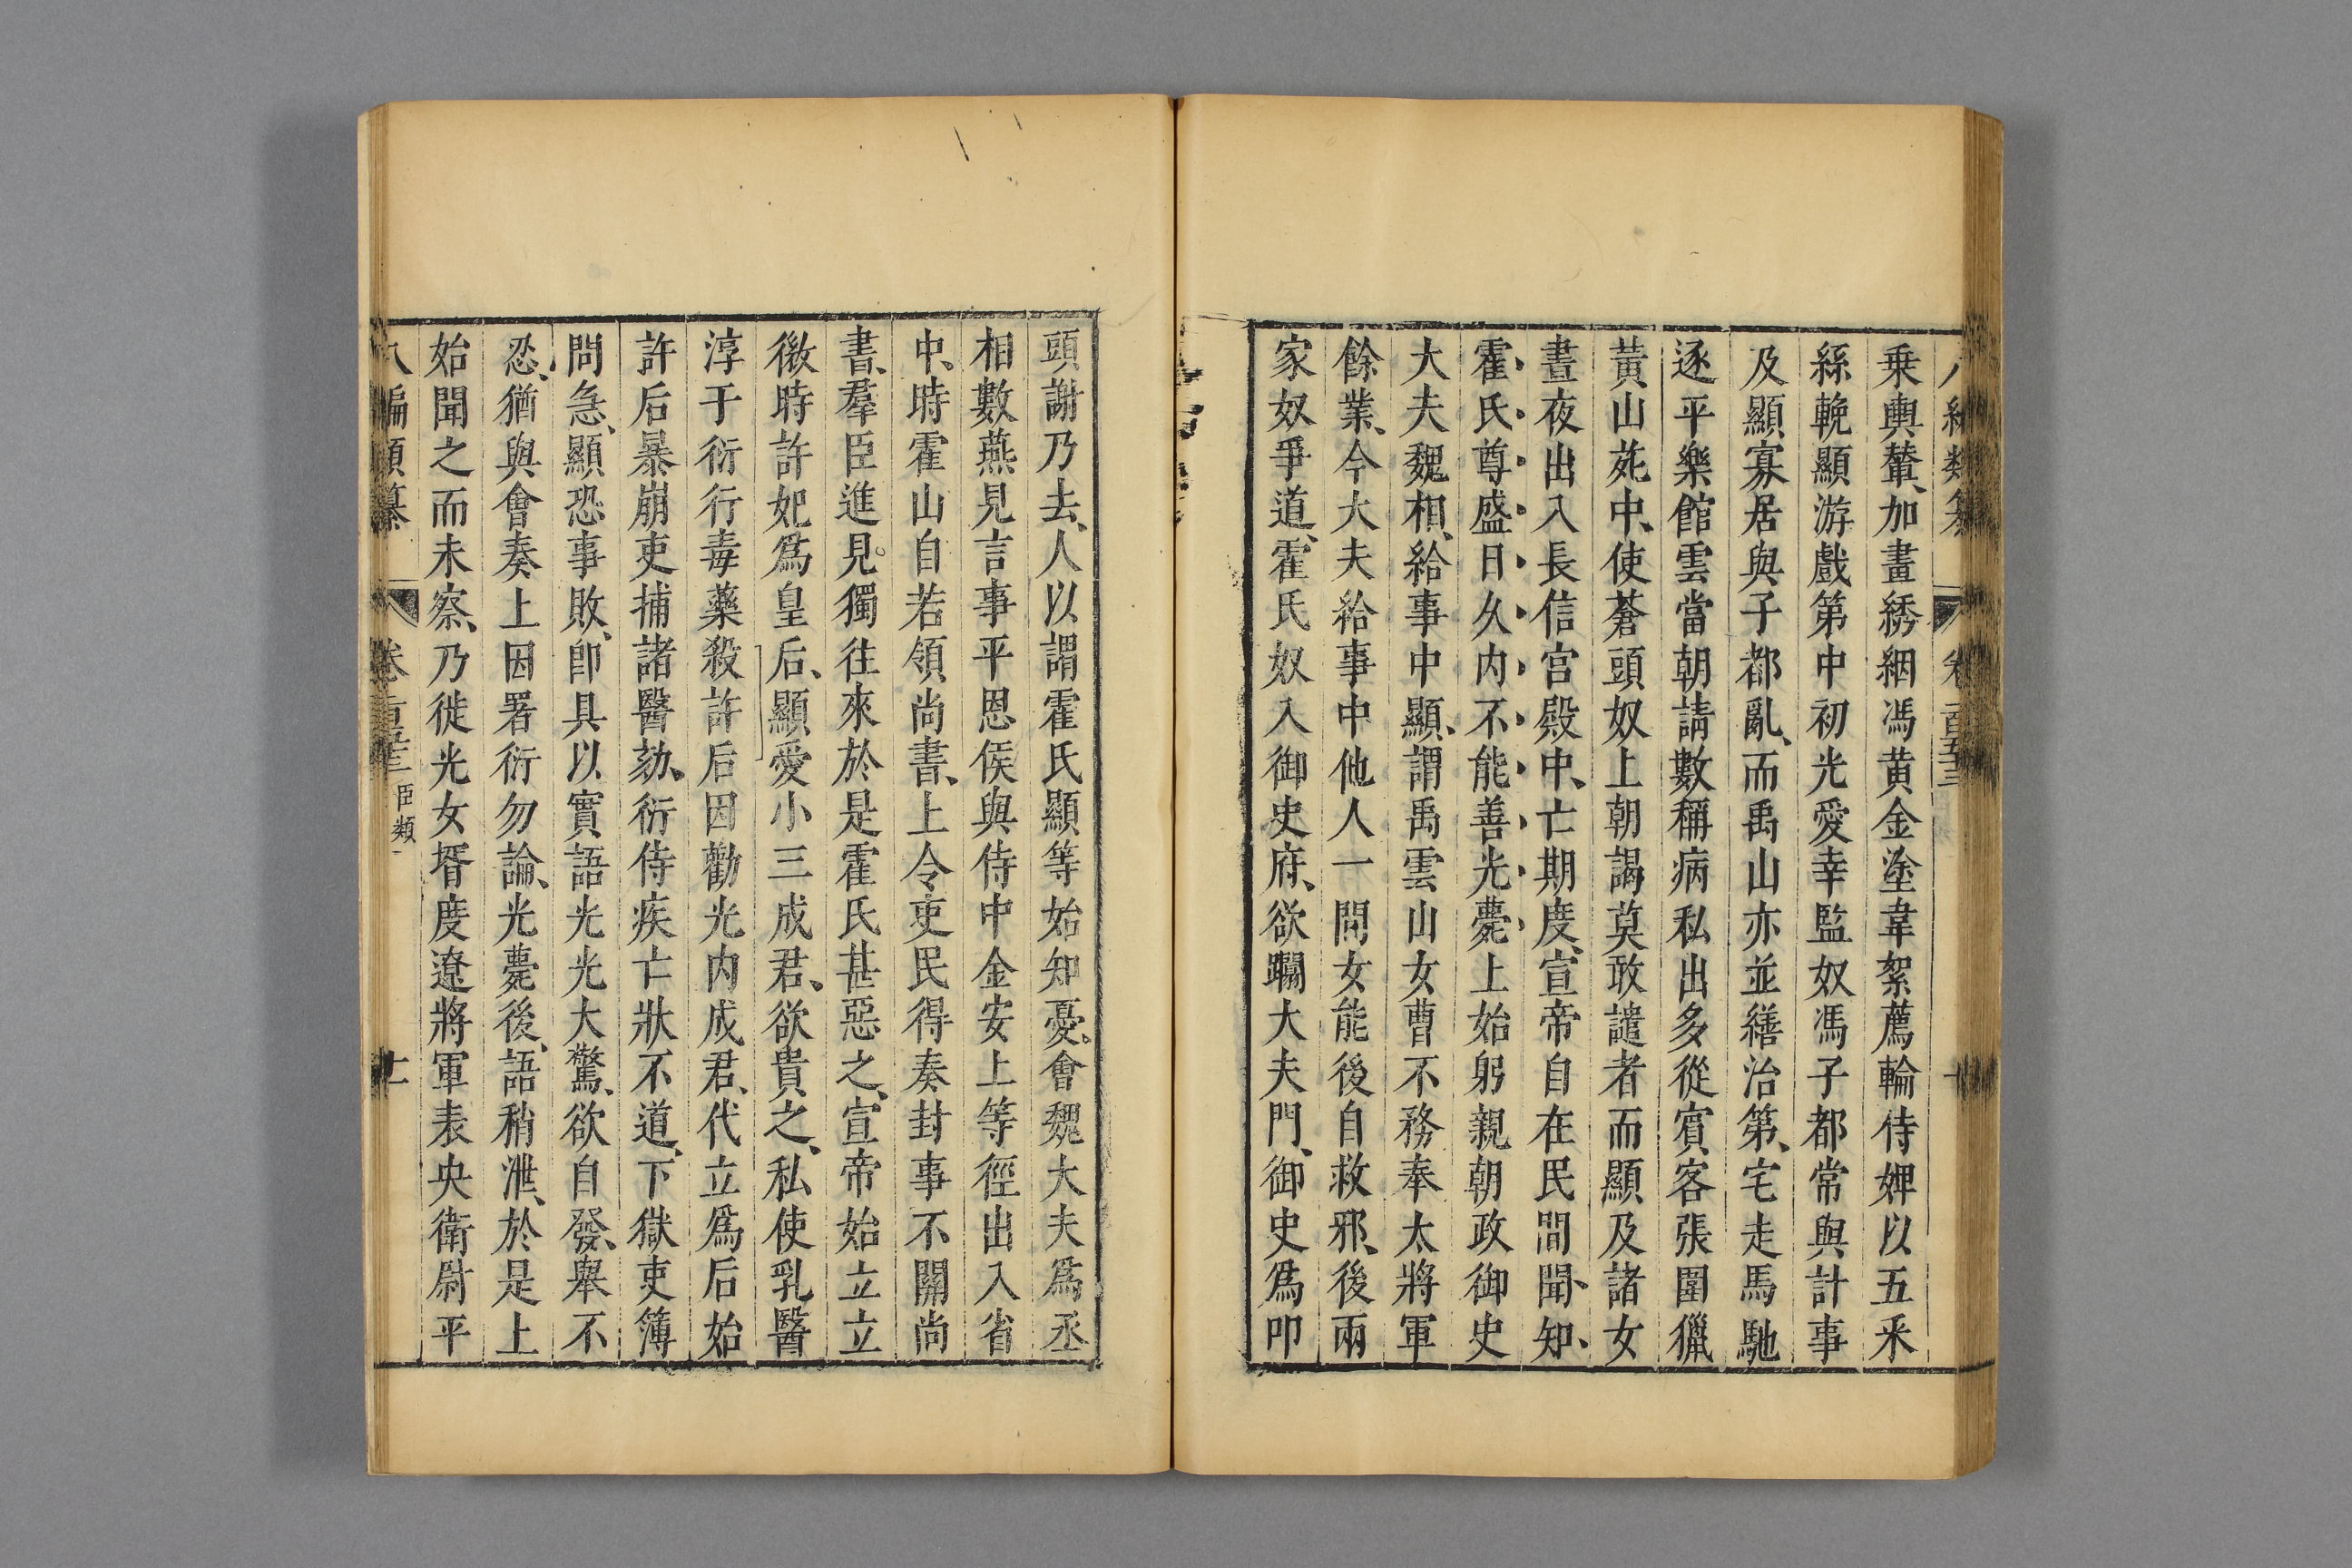 編類纂 卷一百五十三 十
乗輿輦、加畫綉絪馮黄金塗韋絮薦輪侍婢以五采
絲輓顯游戲第中初光愛幸監奴馮子都常與計事
及顯寡居與子都亂、而禹山亦並繕治第、宅走馬馳
逐平樂館雲當朝請數稱病私出多從賓客張圍獵
黃山苑中、使蒼頭奴上朝謁莫敢譴者而顯及諸女
晝夜出入長信宮殿中、亡期度、宣帝自在民間聞、知、
霍氏尊盛日久内不能善光薨上始躬親朝政御史
大夫魏相、給事中顯、謂禹雲山女曹不務奉太將軍
餘業、今大夫給事中他人一問女能後自救邪、後兩
家奴爭道、霍氏奴入御史府、欲躢大夫門、御史爲叩
頭謝乃去、人以謂霍氏顯等始知憂、會魏大夫爲丞
相數燕見言事平恩侯與侍中金安上等徑出入省
中、時霍山自若領尚書、上令吏民得奏封事不關尚
書、羣臣進見獨往來於是霍氏甚惡之、宣帝始立立
微時許妃爲皇后、顯愛小三成君、欲貴之、私使乳醫
淳于衍行毒藥殺許后因勸光内成君、代立爲后始
許后暴崩吏捕諸醫劾、衍侍疾亡狀不道、下獄吏簿
問急、顯恐事敗、卽具以實語光光大驚、欲自發、舉不
忍、猶與會奏上因署衍勿論、光薨後、語稍泄、於是上
始聞之而未察、乃徙光女壻度遼將軍表央衛尉平
八編類纂 卷一百五十三 臣類 十一